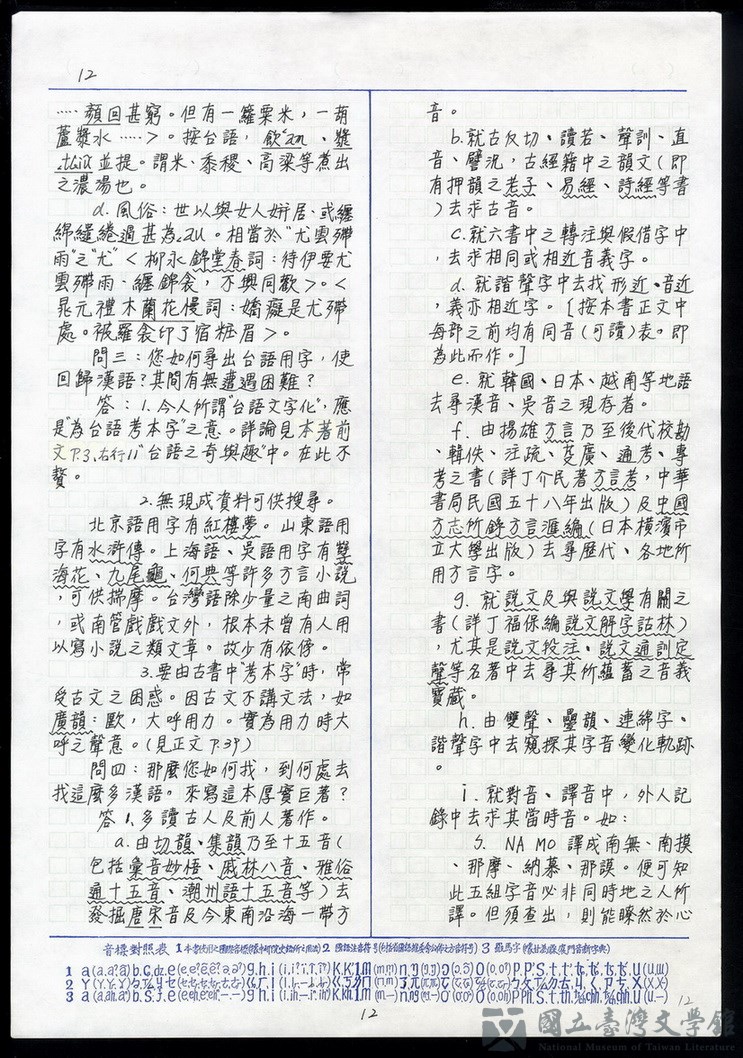 12
……顏回甚窮。但有一籮粟米,一葫
蘆漿水……>。按台語,飲ʿam、漿
並提。謂米、黍稷、高粱等煮出
之濃湯也。
d.風俗:世以與女人姘居、或纏
綿繾綣過甚為。相當於"尤雲殢
雨"之"尤"<柳永錦堂春詞:待伊要尤
雲殢雨、纏錦衾,不與同歡>。<
晁元禮木蘭花慢詞:嬌癡是尤殢
處。被羅衾印了宿粧眉>。
問三:您如何尋出台語用字,使
回歸漢語?其間有無遭遇困難?
答:1.今人所謂"台語文字化",應
是"為台語考本字"之意。詳論見本著前
文P.3、右行11"台語之奇與趣"中。在此不
贅。
2.無現成資料可供搜尋。
北京語用字有紅樓夢。山東語用
字有水滸傳。上海語、吳語用字有孽
海花、九尾龜、何典等許多方言小說
,可供揣摩。台灣語除少量之南曲詞
,或南管戲戲文外,根本未曾有人用
以寫小說之類文章。故少有依傍。
3.要由古書中"考本字"時,常
受古文之困惑。因古文不講文法,如
廣韻:歐,大呼用力。實為用力時大
呼之聲意。(見正文P.39)
問四:那麼您如何找,到何處去
找這麼多漢語。來寫這本厚實巨著?
答1.多讀古人及前人著作。
a.由切韻、集韻乃至十五音(
包括彙音妙悟、戚林八音、雅俗
通十五音、潮州語十五音等)去
發掘唐宋音及今東南沿海一帶方
音。
b.就古反切、讀若、聲訓、直
音、譬況,古經籍中之韻文(即
有押韻之老子、易經、詩經等書
)去求古音。
c.就六書中之轉注與假借字中
,去求相同或相近音義字。
d.就諧聲字中去找形近、音近
,義亦相近字。[按本書正文中
每部之前均有同音(可讀)表。即
為此而作。]
e.就韓國、日本、越南等地語
去尋漢音、吳音之現存者。
f.由揚雄方言乃至後代校勘
、輯佚、注疏、蔓廣、通考、專
考之書(詳丁介民著方言考,中華
書局民國五十八年出版)及中國
方志所錄方言滙編(日本橫濱市
立大學出版)去尋歷代、各地所
用方言字。
g.就說文及與說文學有關之
書(詳丁福保編說文解字詁林)
,尤其是說文段注、說文通訓定
聲等名著中去尋其所蘊蓄之音義
寶藏。
h.由雙聲、疊韻、連綿字、
諧聲字中去窺探其字音變化軌跡
。
i.就對音、譯音中,外人記
錄中去求其當時音。如:
NA MO 譯成南無、南摸
、那摩、納慕、那謨。便可知
此五組字音必非同時地之人所
譯。但須查出,則能瞭然於心
音標對照表
12
12
國立臺灣文學館
National Museum of Taiwan Literature